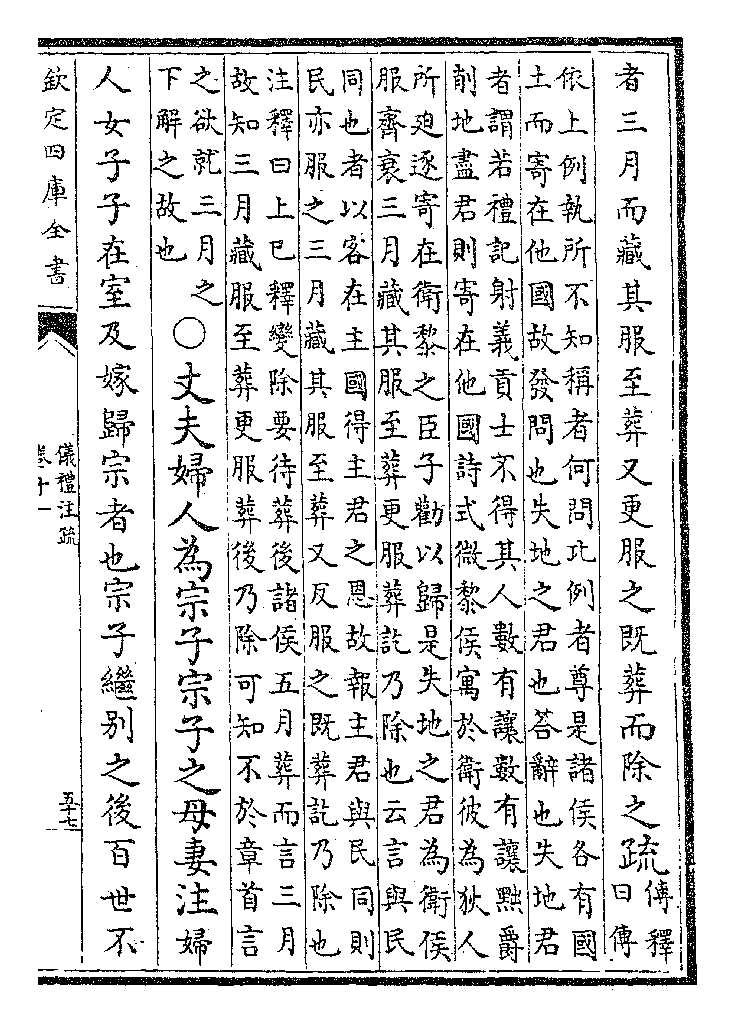 者三月而藏其服至葬又更服之既葬而除之疏傳釋
曰傳
依上例執所不知稱者何問比例者尊是諸侯各有國
土而寄在他國故發問也失地之君也答辭也失地君
者謂若禮記射義貢士不得其人數有讓數有讓黜爵
削地盡君則寄在他國詩式微黎侯寓於衛彼為狄人
所廹逐寄在衛黎之臣子勸以歸是失地之君為衛侯
服齊衰三月藏其服至葬更服葬訖乃除也云言與民
同也者以客在主國得主君之恩故報主君與民同則
民亦服之三月藏其服至葬又反服之既葬訖乃除也
注釋曰上已釋變除要待葬後諸侯五月葬而言三月
故知三月藏服至葬更服葬後乃除可知不於章首言
之欲就三月之
下解之故也
○丈夫婦人為宗子宗子之母妻注婦
人女子子在室及嫁歸宗者也宗子繼别之後百世不
欽定四庫全書
儀禮注疏
卷十一
五十七